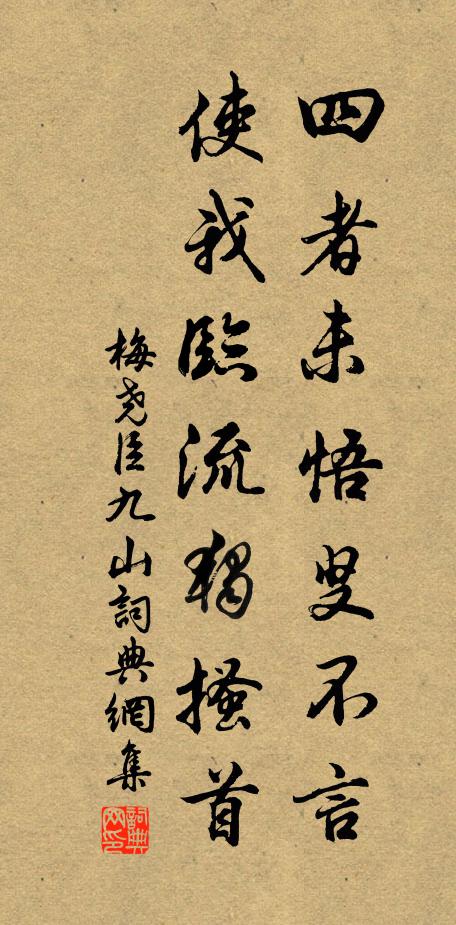 四者未悟叟不言
使我臨流獨搔首
梅堯臣九山詞典網集
詞典网印